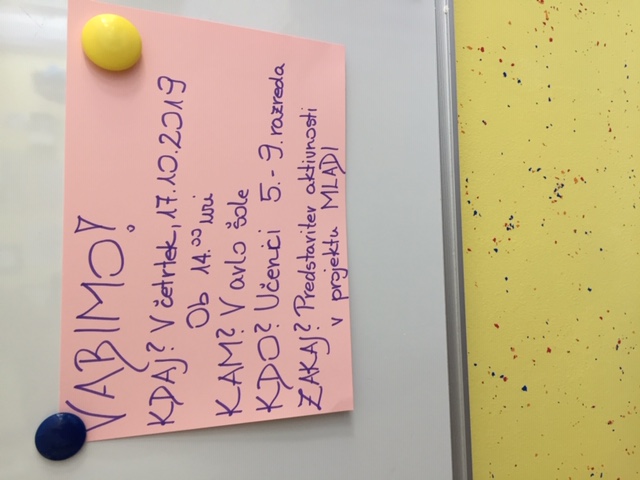 VABIMO!
KDAJ? V četrtek, 17.10.2019
Ob 14.00 uri
KAM? V avlo šole
KDO? Učenci 5.-9. razreda
ZAKAJ? Predstavitev aktivnosti
v projektu MLADI